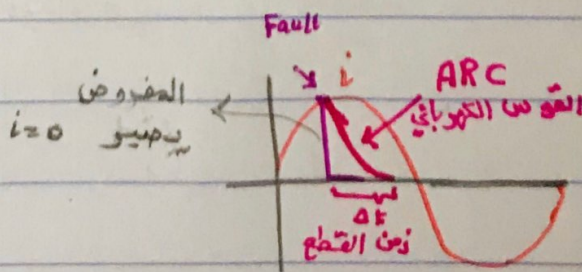 Fault
i
ARC
القوس الكهربائي
المفروض
يصير i=0
Δt
زمن القطع